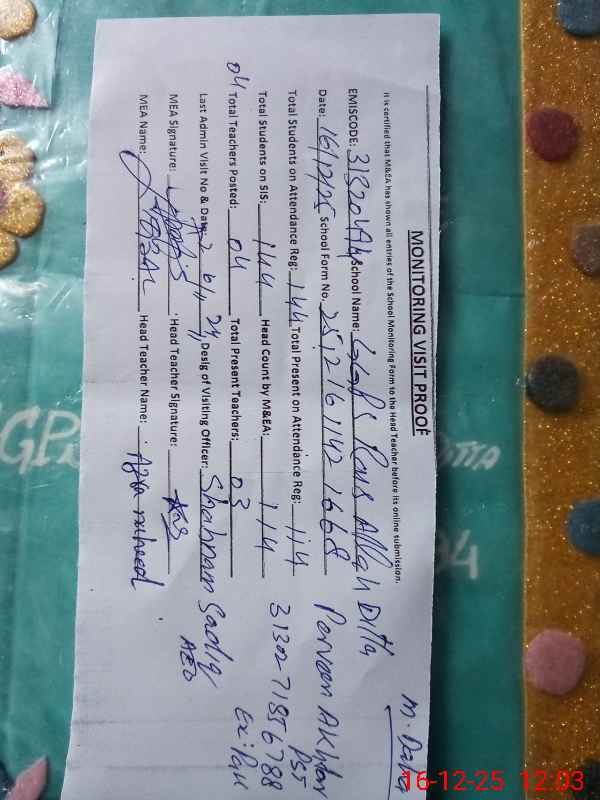 MONITORING VISIT PROOF
It is certified that M&EA has shown all entries of the School Monitoring Form to the Head Teacher before its online submission.
EMISCODE: School Name: Allah Ditta
Date: 16/12/25 School Form No. 25121611421668
Total Students on Attendance Reg: 144 Total Present on Attendance Reg: 114
Total Students on SIS: 144 Head Count by M&EA: 114
04 Total Teachers Posted: 04 Total Present Teachers: 03
Last Admin Visit No & Date: Desig of Visiting Officer: Shabnam Sadiq
AEO
MEA Signature: Head Teacher Signature:
MEA Name: Head Teacher Name: Azra naheed
Parveen Akhtar
PST
3130271856788
M.
16-12-25 12:03